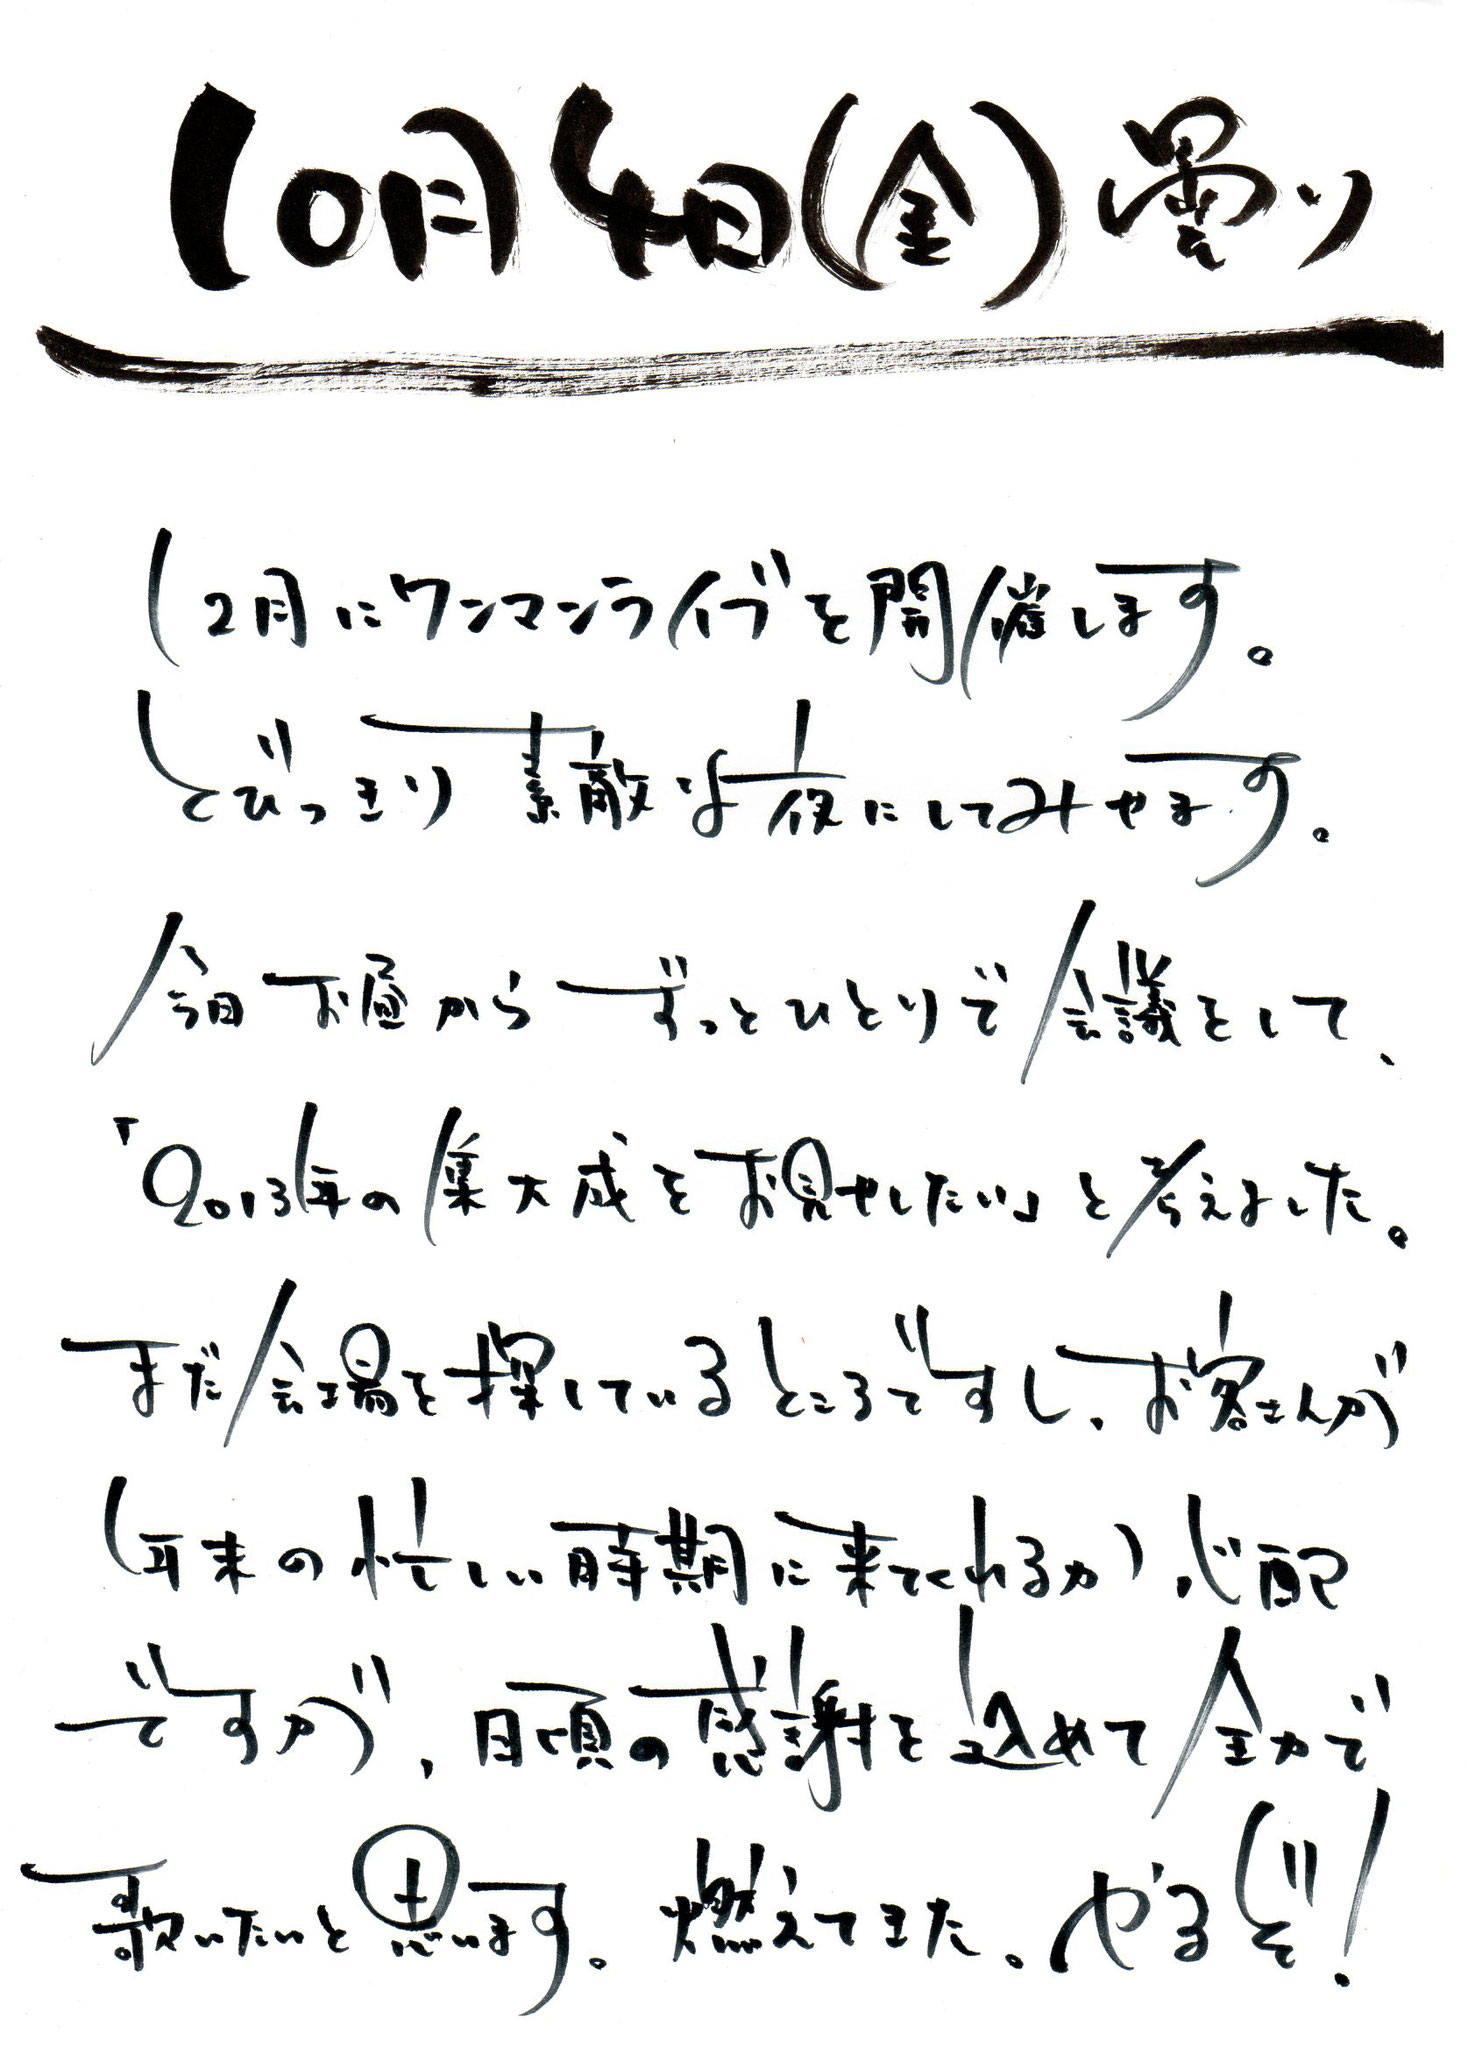 10月4日(金)曇り
12月にワンマンライブを開催します。
とびっきり素敵な夜にしてみせます。
今日お昼からずっとひとりで会議をして、
「2013年の集大成をお見せしたい」と考えました。
まだ会場を探しているところですし、お客さんが
年末の忙しい時期に来てくれるか心配
ですが、日頃の感謝を込めて全力で
歌いたいと思います。燃えてきた。やるぞ!